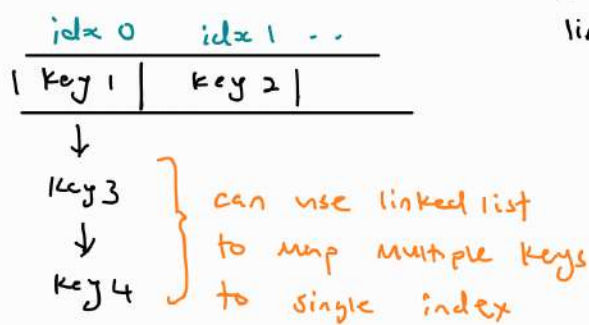 idx 0 idx 1 ..
li
| key 1 | key 2 |
↓
key 3
↓
key 4
can use linked list
to map multiple keys
to single index